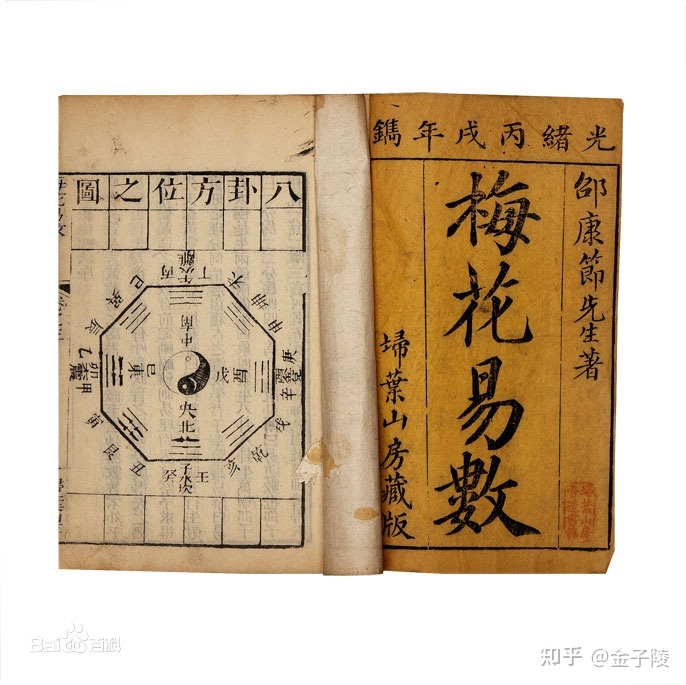 光緒丙戌年鐫
邵康節先生著
梅花易數
埽葉山房藏版
八卦方位之圖
午火離
丙
丁
未
坤
申
庚
辛
戌
乾
亥
壬
子水坎
癸
丑
艮
寅
甲
卯
乙
辰
巽
巳
南
中
酉
戊
己
東
央
北
Bai百科
知乎 @金子陵